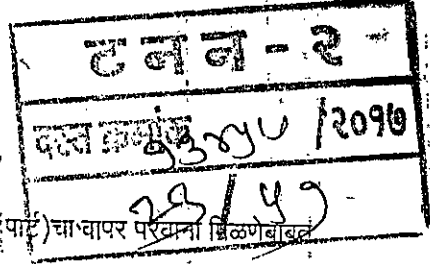 टनन - २
दस्त क्रमांक /२०१७
/ ५१
पार्ट)चा वापर परवाना मिळणेबाबत